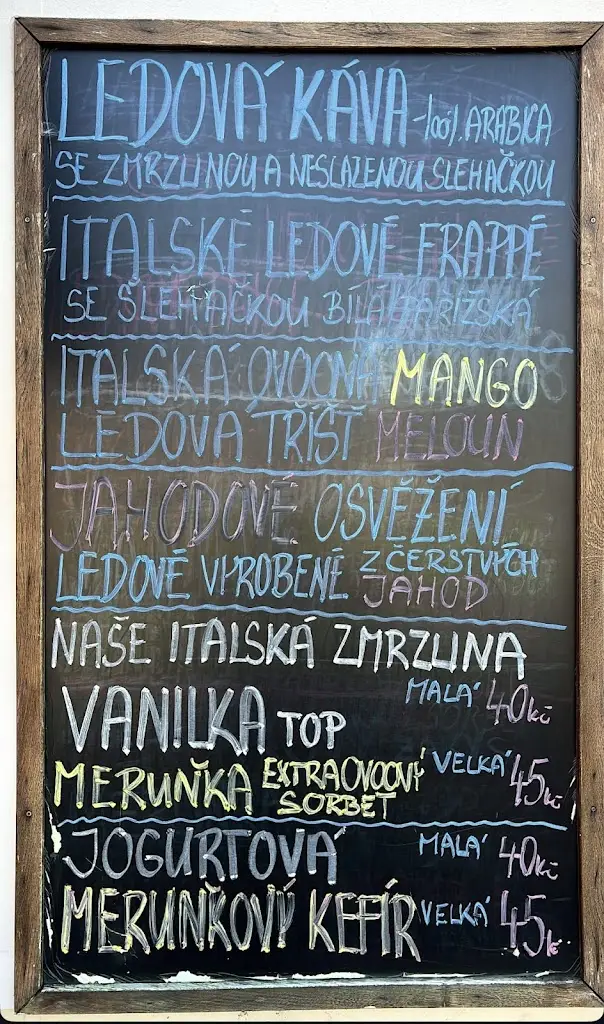 LEDOVÁ KÁVA -100% ARABICA
SE ZMRZLINOU A NESLAZENOU ŠLEHAČKOU
ITALSKÉ LEDOVÉ FRAPPÉ
SE ŠLEHAČKOU BÍLÁ PAŘÍŽSKÁ
ITALSKÁ OVOCNÁ MANGO
LEDOVÁ TŘÍŠŤ MELOUN
JAHODOVÉ OSVĚŽENÍ
LEDOVÉ VYROBENÉ Z ČERSTVÝCH
JAHOD
NAŠE ITALSKÁ ZMRZLINA
VANILKA TOP MALÁ 40Kč
MERUŇKA EXTRAOVOCNÝ VELKÁ 45Kč
SORBET
JOGURTOVÁ MALÁ 40Kč
MERUŇKOVÝ KEFÍR VELKÁ 45Kč